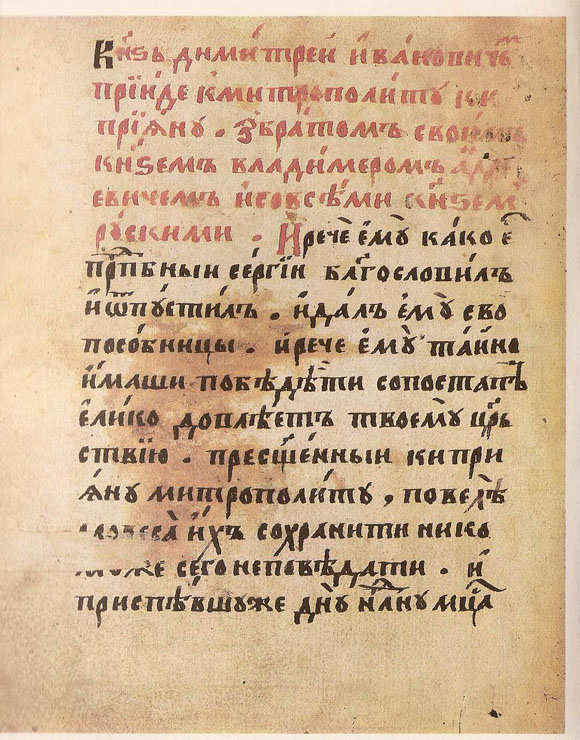 Кнѕь димитреи ивановичь
прїиде кмитрополиту кк
прїяну . збратомъ своимъ
кнѕемъ владимеромъ
евичемъ исовсѣми кнѕем
рускими . И рече ему како е҃
прⷣпбныи сергїи блгословилъ
иѿпустилъ . идалъ ему сво
пособницы . ирече ему таино
имаши побѣдѣти сопостатъ
елико довлѣетъ твоему црь
ствїю . пресщенныи кипри
яну митрополиту , повелѣ
словеса ихъ сохранити нико
муже сего неповѣдати . и
приспѣвшуже дну мцⷭа